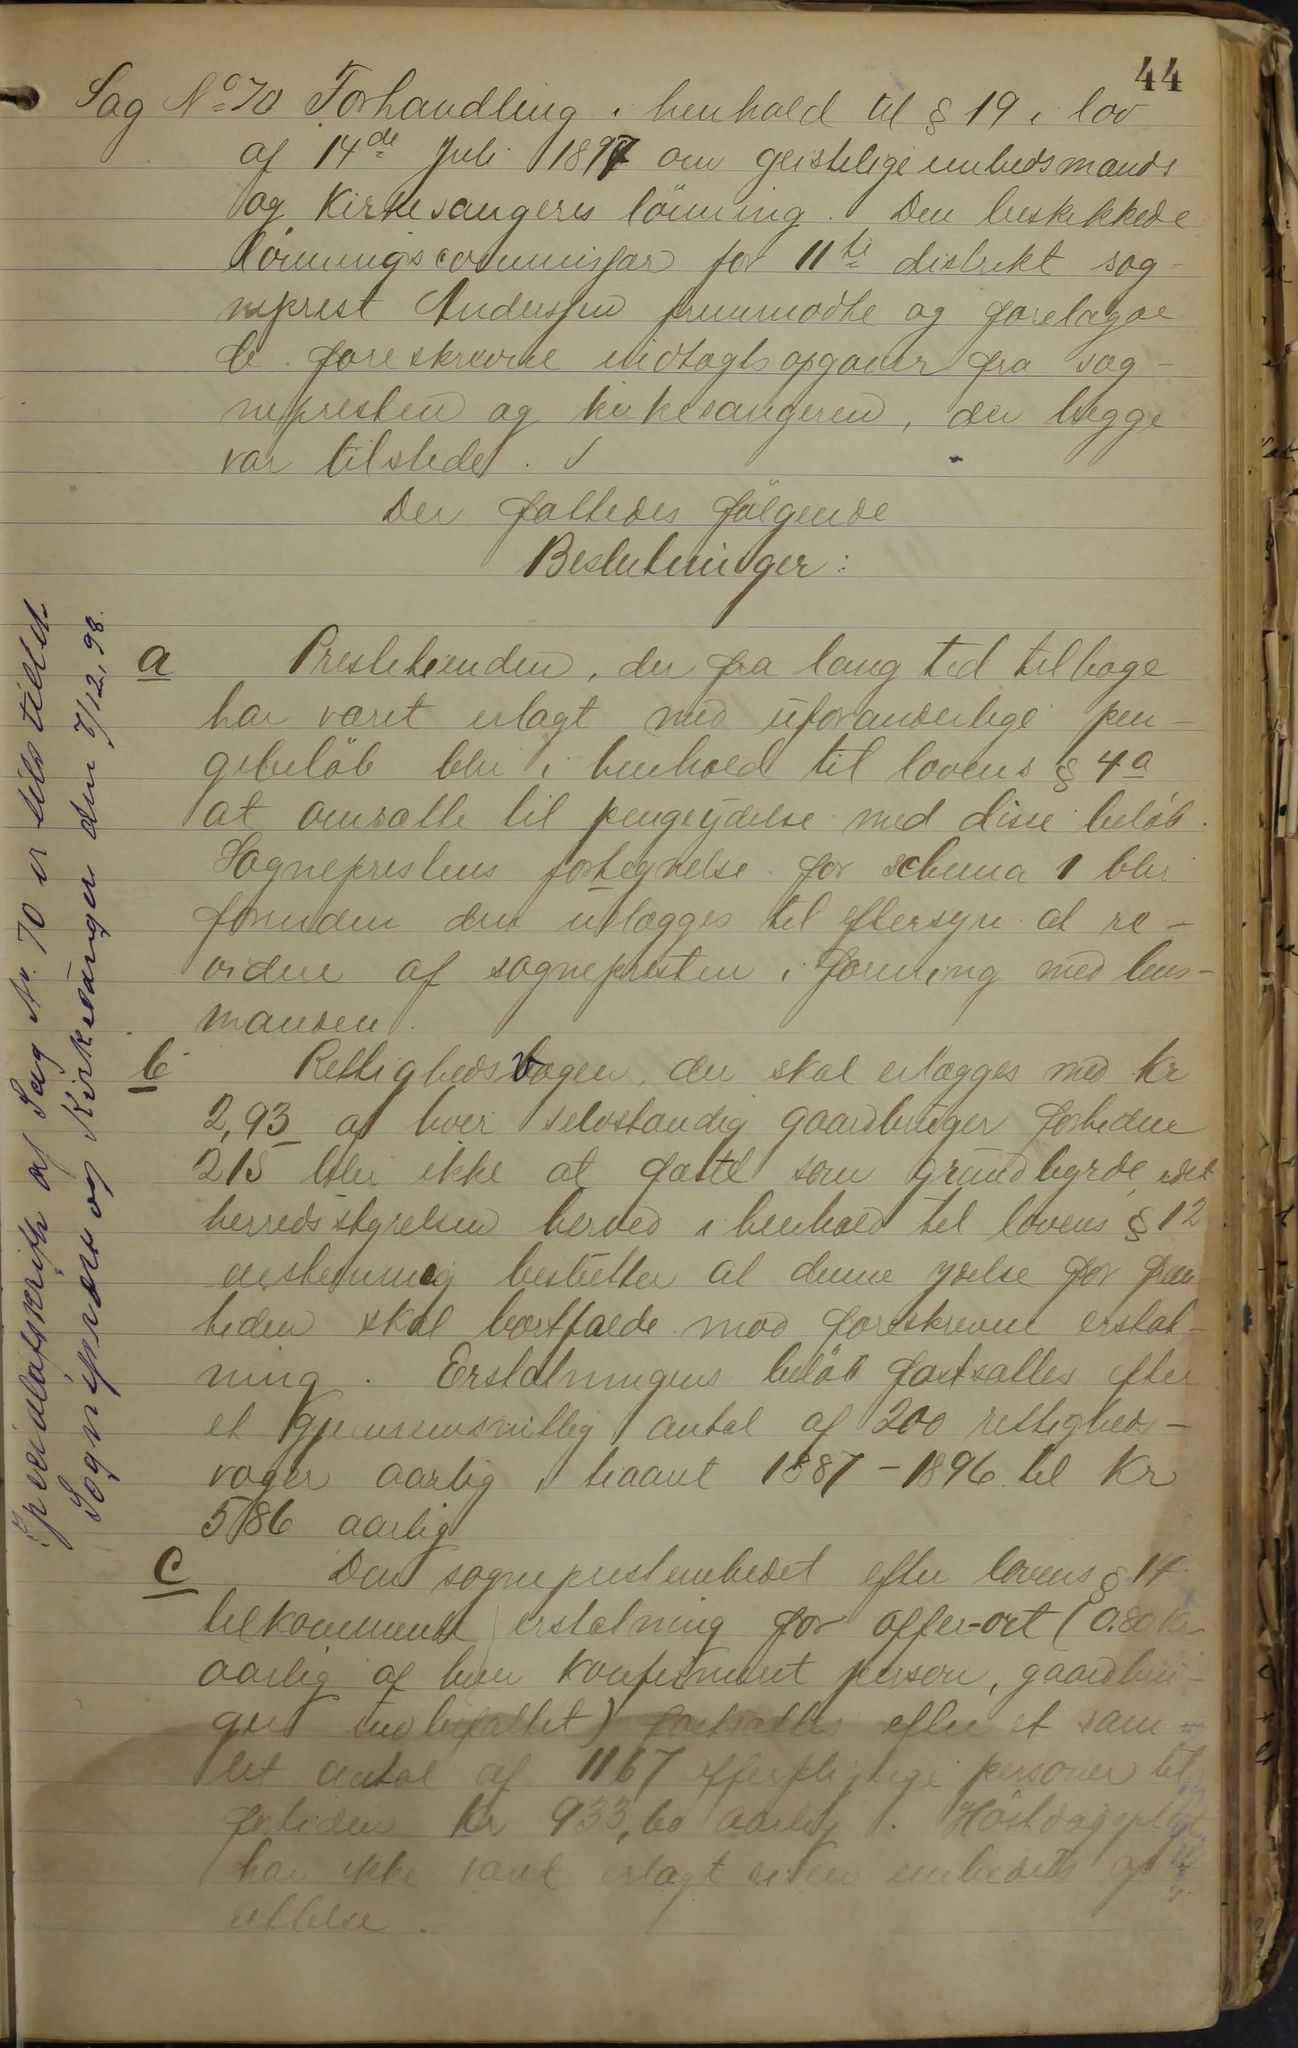 44
Sag No 70 Forhandling i henhold til § 19 i lov
af 14de Juli 1897 om geistlige embedsmænds
og Kirkesangeres lönning. Den beskikkede
lönningscommissær for 11te distrikt sog-
neprest Anderssen fremmödte og forelagde
de foreskrevne indtægtsopgaver fra sog-
nepresten og kirkesangeren, der begge
var tilstede.
Der fattedes fölgende
Beslutninger:
a Prestetienden, der fra lang tid tilbage
har været erlagt med uforanderlige pen-
gebelöb blir i henhold til lovens § 4a
at omsætte til pengeydelse med disse belöb.
Sogneprestens fortegnelse for schema 1 blir
forinden den udlægges til eftersyn at re-
videre af sognepresten i forening med lens-
manden.
b Rettighedsvogen, der skal erlægges med kr
2,93 af hver selvstændig gaardbruger forheden
215 blir ikke at fæste som grundbyrde, idet
herredsstyrelsen herved i henhold til lovens § 12
enstemmig beslutter at denne ydelse for frem-
tiden skal bortfalde mod foreskreven erstat-
ning. Erstatningens belöb fastsættes efter
et gjennemsnitlig antal af 200 rettigheds-
voger aarlig i tiaaret 1887-1896 til Kr
586 aarlig
c Den sogneprestembedet efter lovens § 14
tilkommende erstatning for offer-ort (0.80 Kr
aarlig af hver konfirmeret person, gaardbru-
gere indbefattet) fastsættes efter et sam-
let antal af 1167 offerpligtige personer til
fortiden Kr 933,60 aarlig. Höstdagspligt
har ikke været erlagt siden embedets op-
rettelse.
Specialafskrift af Sag Nr. 70 er tilstillet
Sogneprest og Kirkesanger den 7/12, 98.